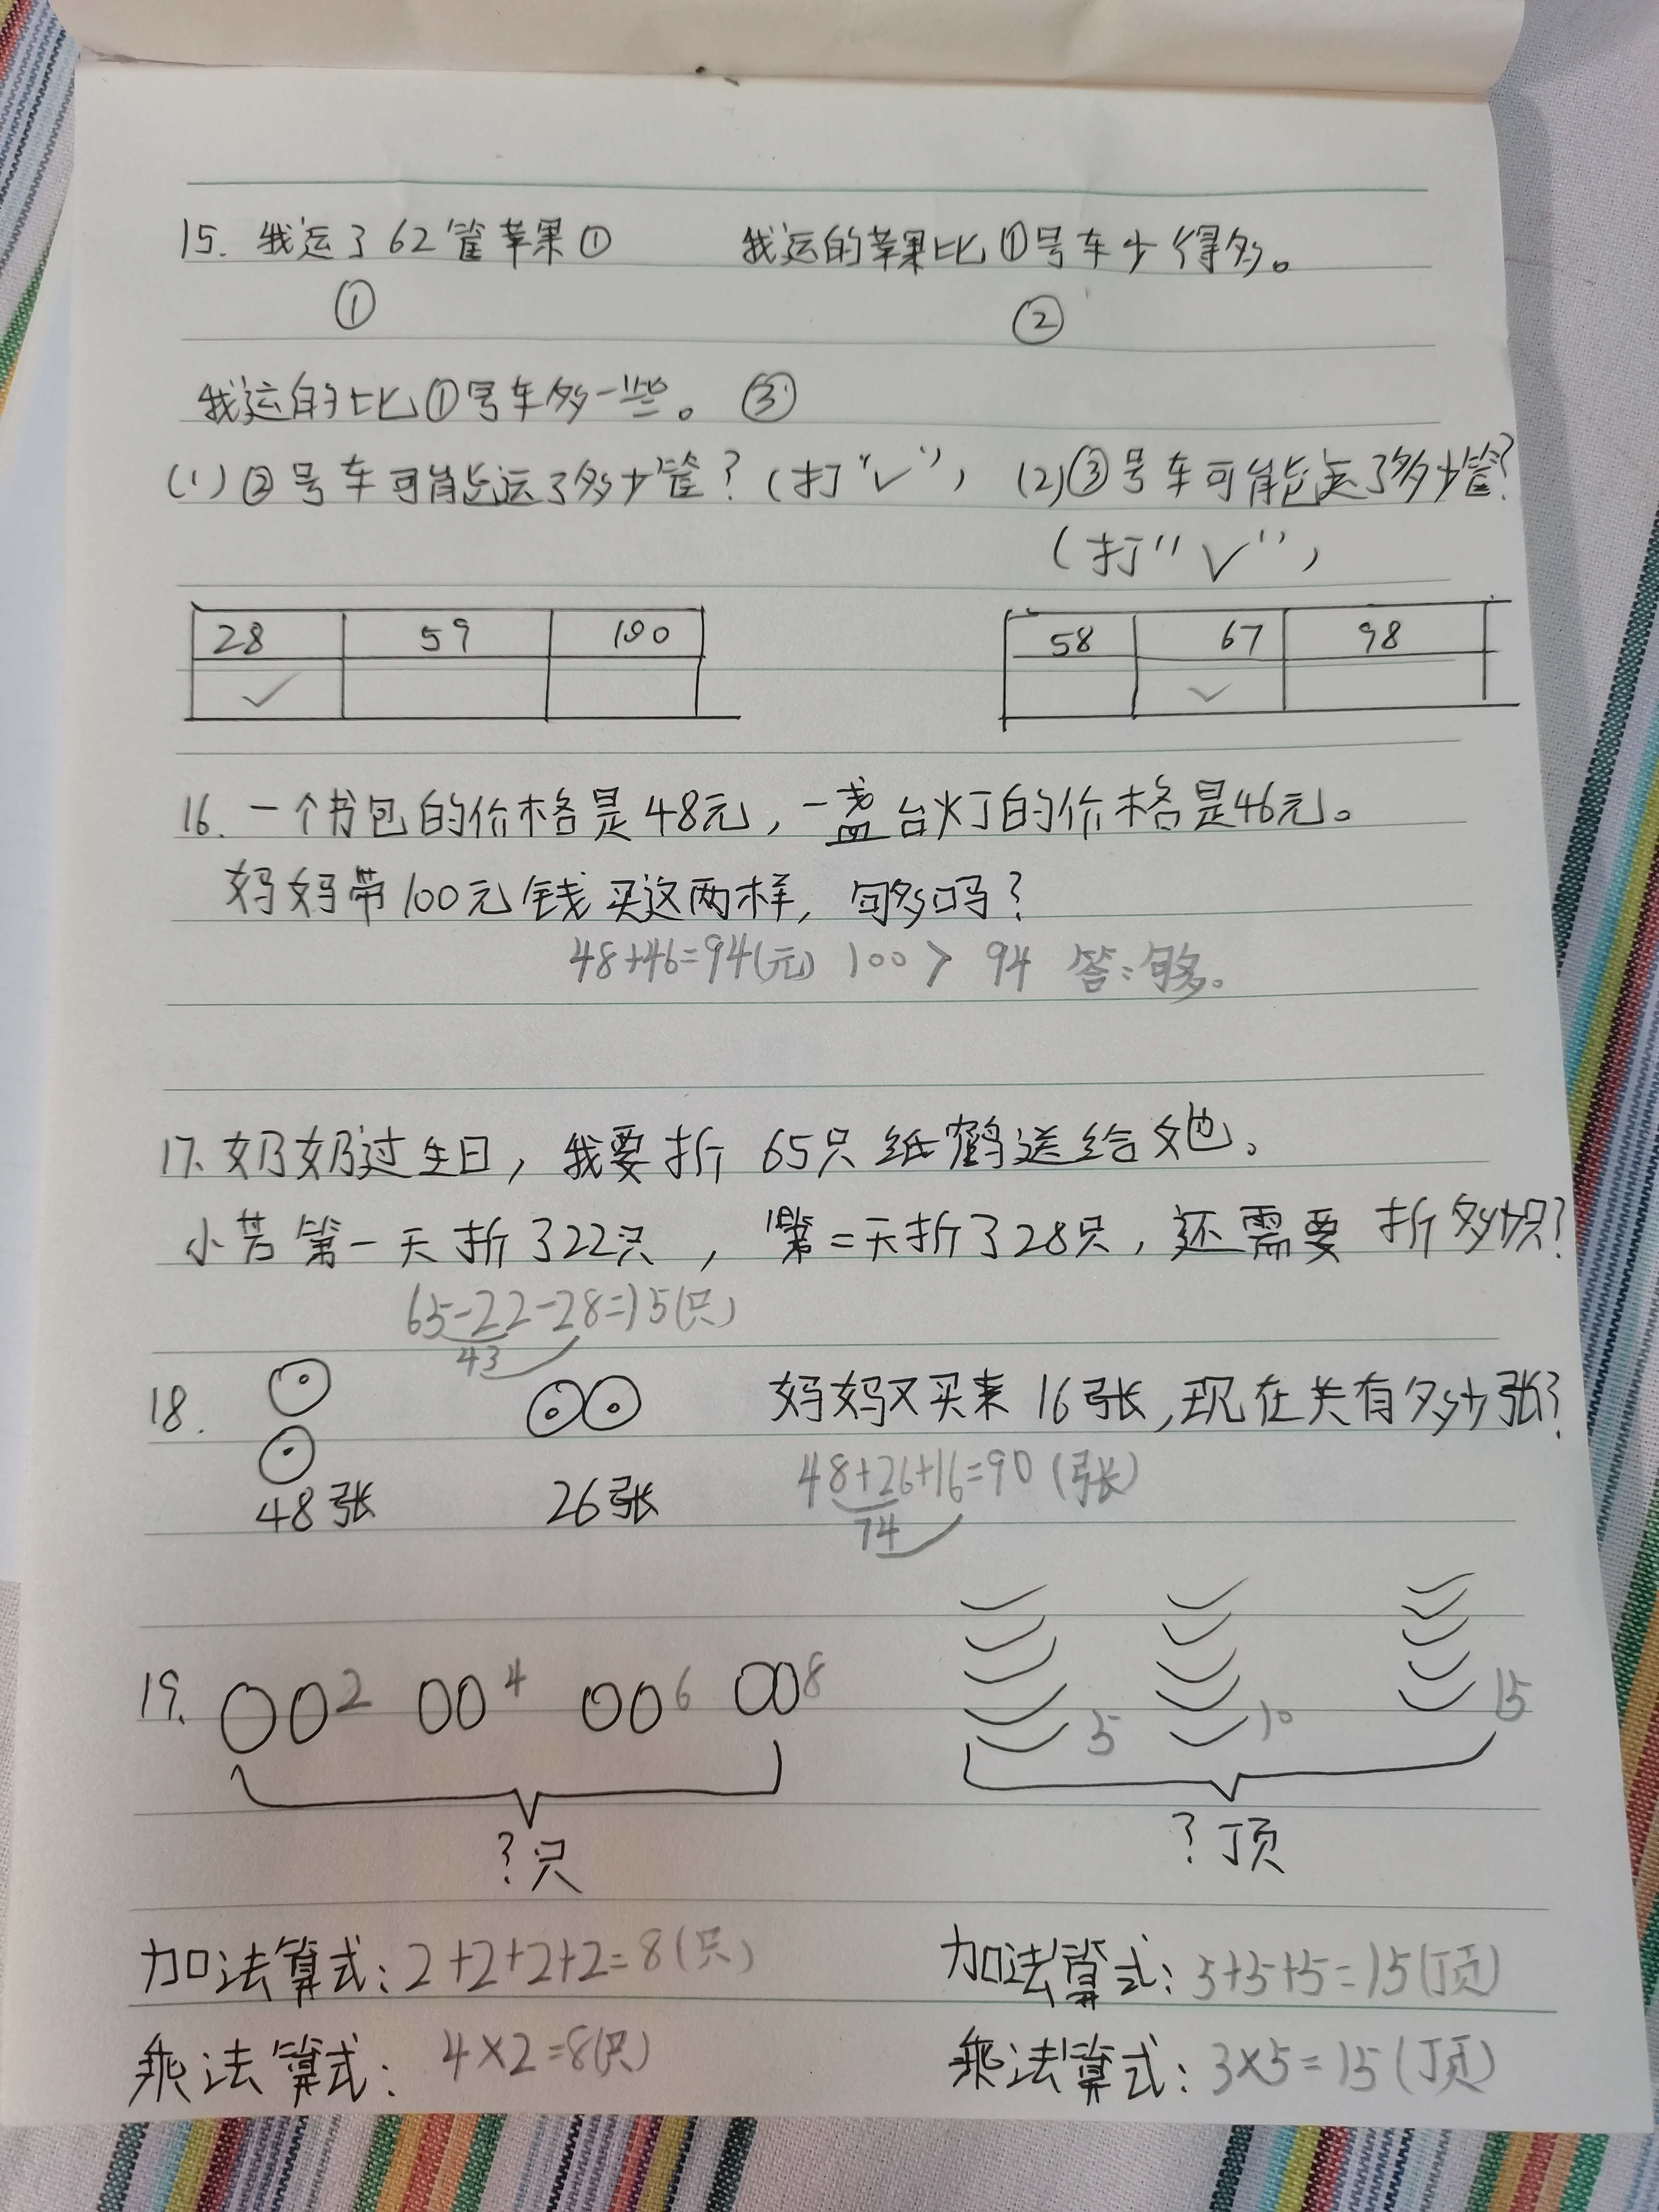 15. 我运了62筐苹果① 我运的苹果比①号车少得多。
① ②
我运的比①号车多一些。 ③
(1)②号车可能运了多少筐?(打“✓”) (2)③号车可能运了多少筐?
(打“✓”)
28 59 100 58 67 98
✓ ✓
16. 一个书包的价格是48元,一盏台灯的价格是46元。
妈妈带100元钱买这两样,够吗?
48+46=94(元) 100 > 94 答:够。
17. 奶奶过生日,我要折 65只纸鹤送给她。
小芳第一天折了22只,第二天折了28只,还需要折多少只?
65-22-28=15(只)
43
18. 妈妈又买来16张,现在共有多少张?
48张 26张 48+26+16=90(张)
74
19. 2 4 6 8 5 10 15
?只 ?顶
加法算式:2+2+2+2=8(只) 加法算式:5+5+5=15(顶)
乘法算式:4×2=8(只) 乘法算式:3×5=15(顶)